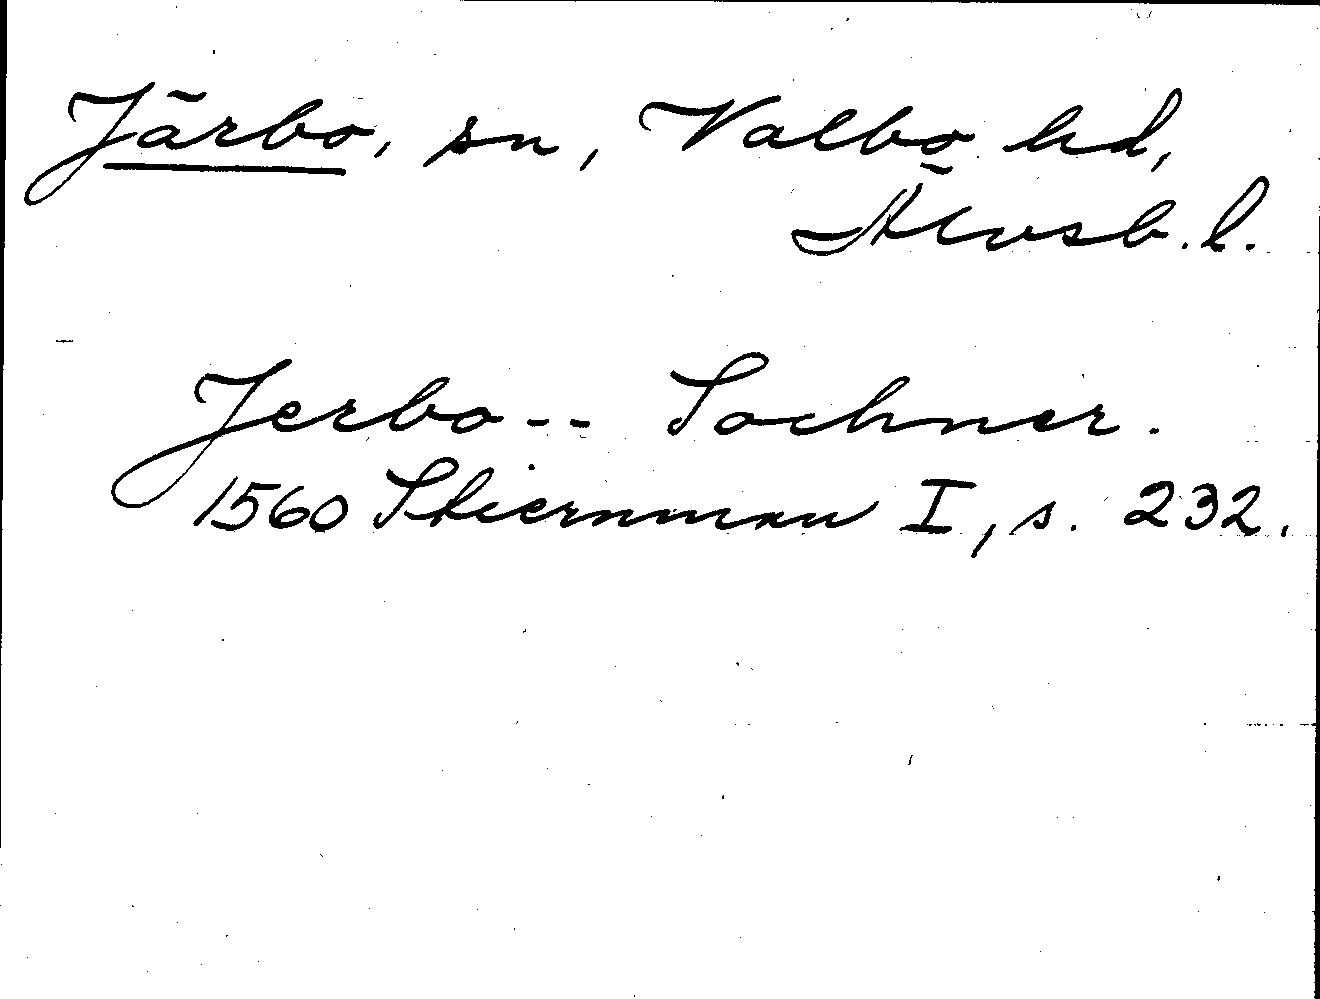 Järbo, sn, Valbo hd,
Älvsb. l.
Jerbo -- Sochner.
1560 Stiernman I, s. 232.